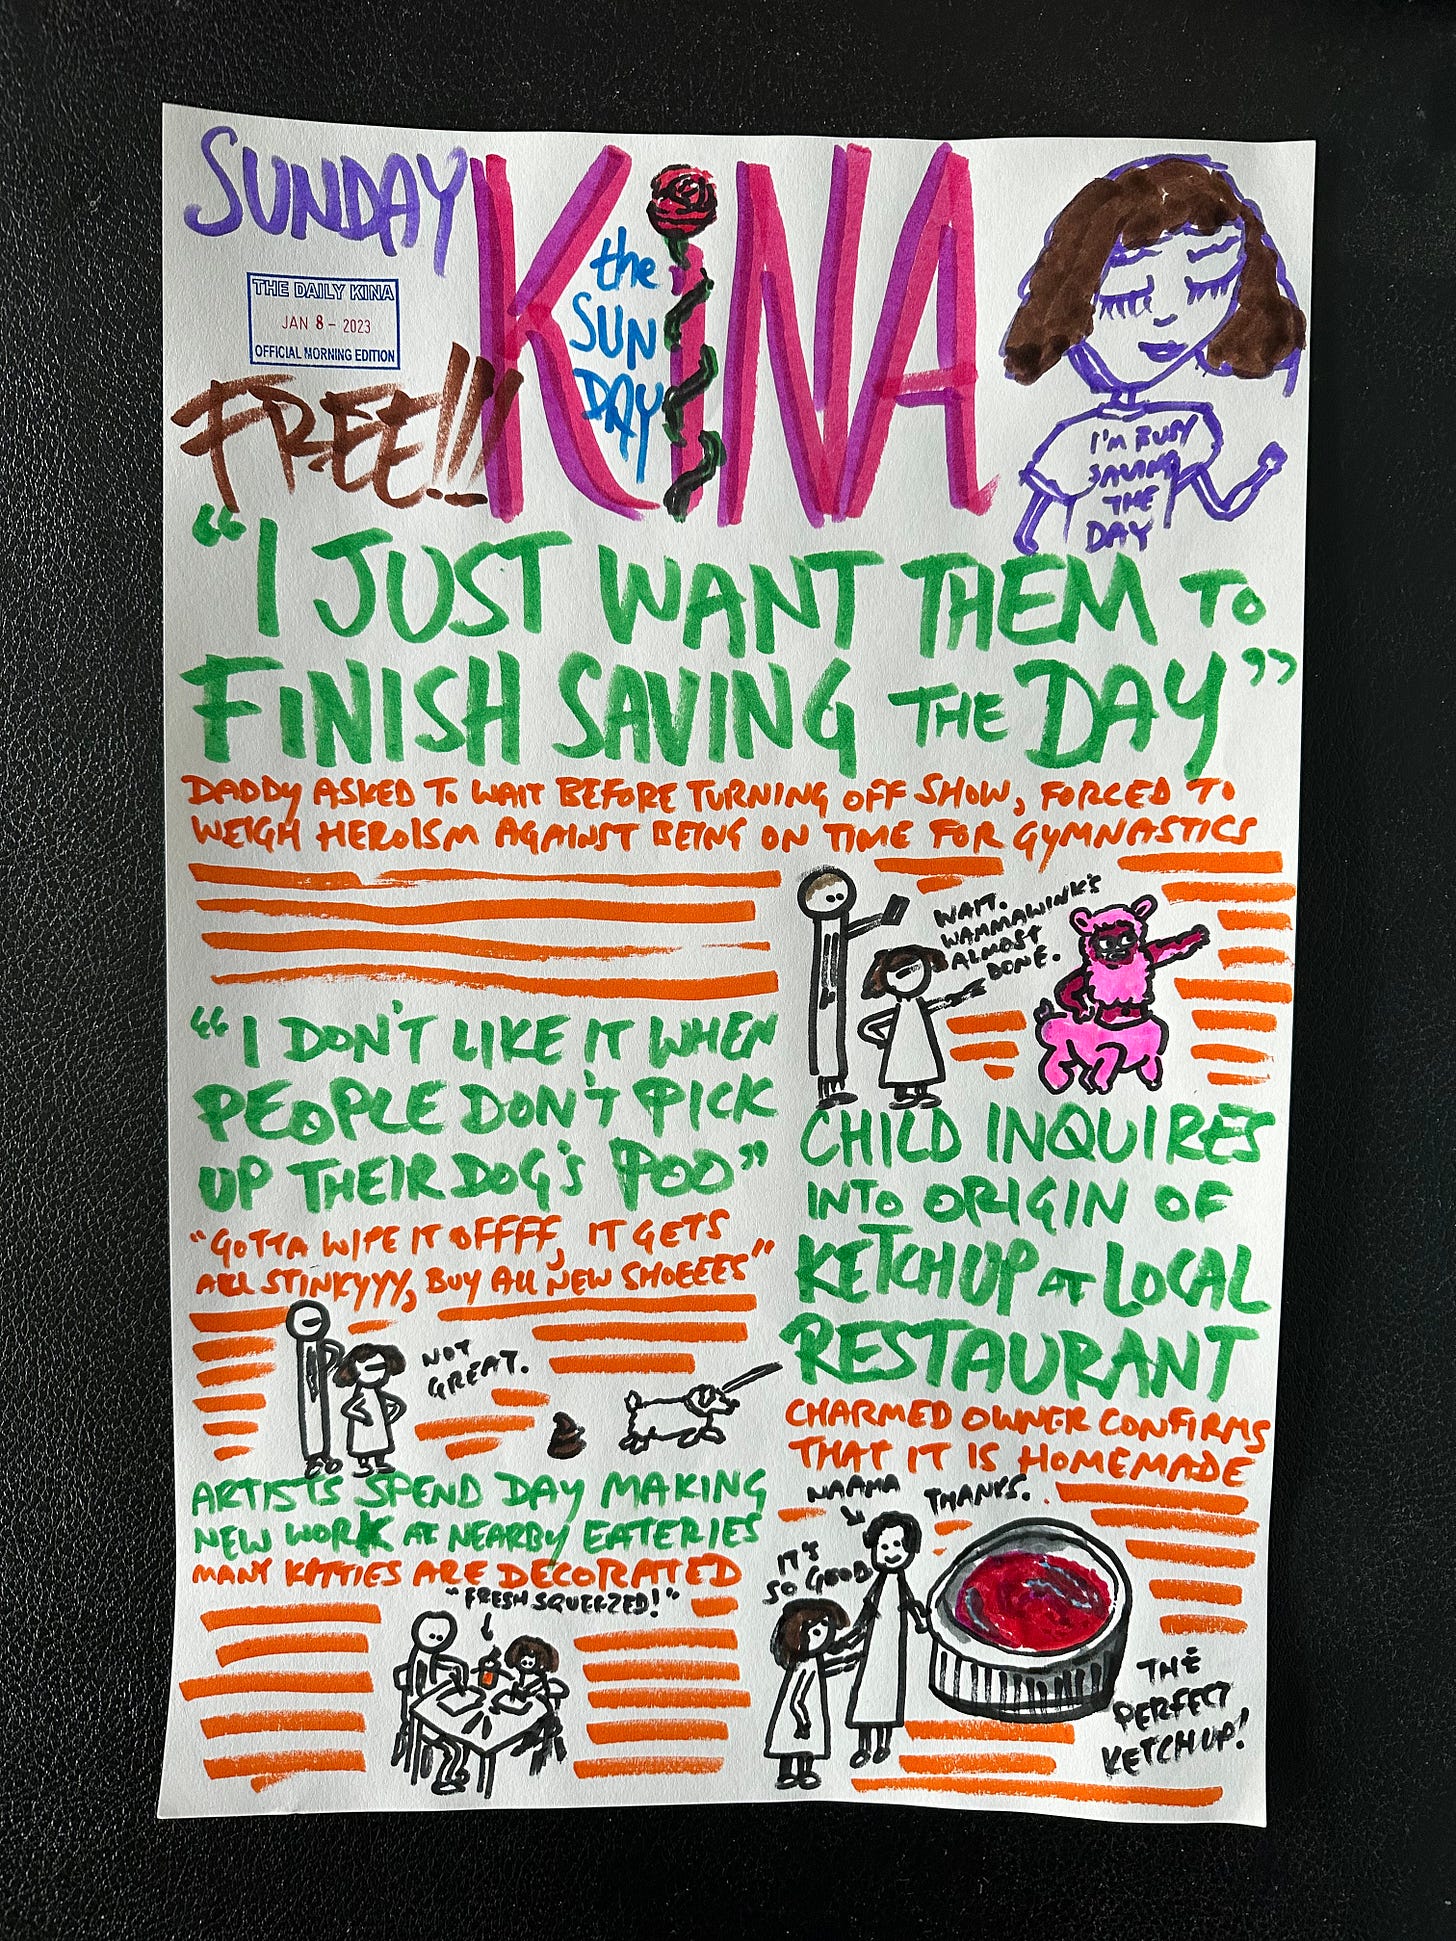 SUNDAY
THE DAILY KINA
JAN 8 - 2023
OFFICIAL MORNING EDITION
FREE!!!
KiNA
the
SUN
DAY
I'M BUSY
SAVING
THE
DAY
"I JUST WANT THEM TO
FINISH SAVING THE DAY"
DADDY ASKED TO WAIT BEFORE TURNING OFF SHOW, FORCED TO
WEIGH HEROISM AGAINST BEING ON TIME FOR GYMNASTICS
WAIT.
WAMMAWINK'S
ALMOST
DONE.
"I DON'T LIKE IT WHEN
PEOPLE DON'T PICK
UP THEIR DOG'S POO"
"GOTTA WIPE IT OFFFF, IT GETS
ALL STINKYYY, BUY ALL NEW SHOEEES"
NOT
GREAT.
CHILD INQUIRES
INTO ORIGIN OF
KETCHUP AT LOCAL
RESTAURANT
CHARMED OWNER CONFIRMS
THAT IT IS HOMEMADE
NAAMA
THANKS.
IT'S
SO GOOD
THE
PERFECT
KETCHUP!
ARTISTS SPEND DAY MAKING
NEW WORK AT NEARBY EATERIES
MANY KITTIES ARE DECORATED
"FRESH SQUEEZED!"